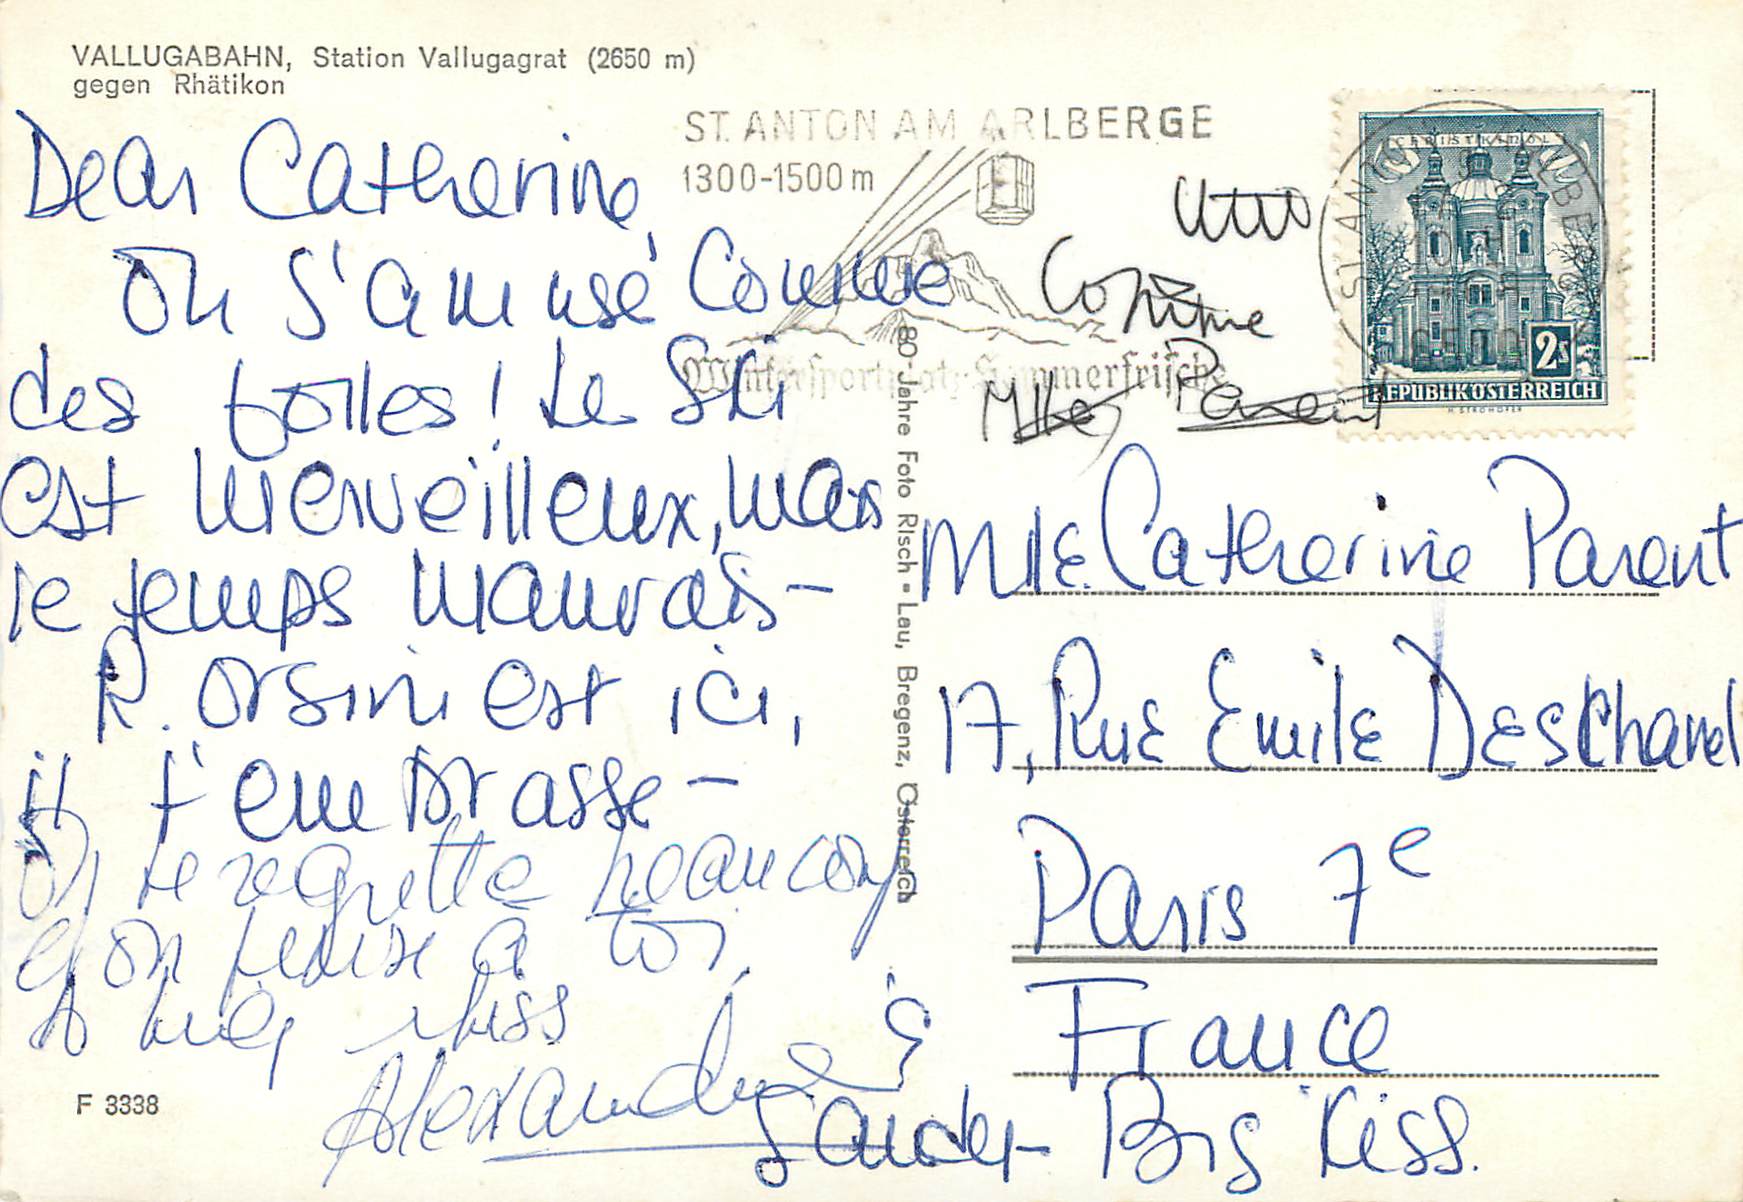 VALLUGABAHN, Station Vallugagrat (2650 m)
gegen Rhätikon
ST. ANTON AM ARLBERGE
1300-1500 m
Wintersportplatz-Sommerfrische
CHRISTKINDL
2s
REPUBLIK ÖSTERREICH
H. STROHOFER
Dear Catherine,
On s'amuse comme
des folles! Le Ski
est merveilleux, mais
le temps mauvais –
R. Orsini est ici,
il t'embrasse –
On te regrette beaucoup
et on pense à toi.
A big kiss
Alexandra
&
Sander Big Kiss.
Parent
Mlle Catherine Parent
17, Rue Emile Deschanel
Paris 7e
France
80 Jahre Foto Risch - Lau, Bregenz, Österreich
F 3338